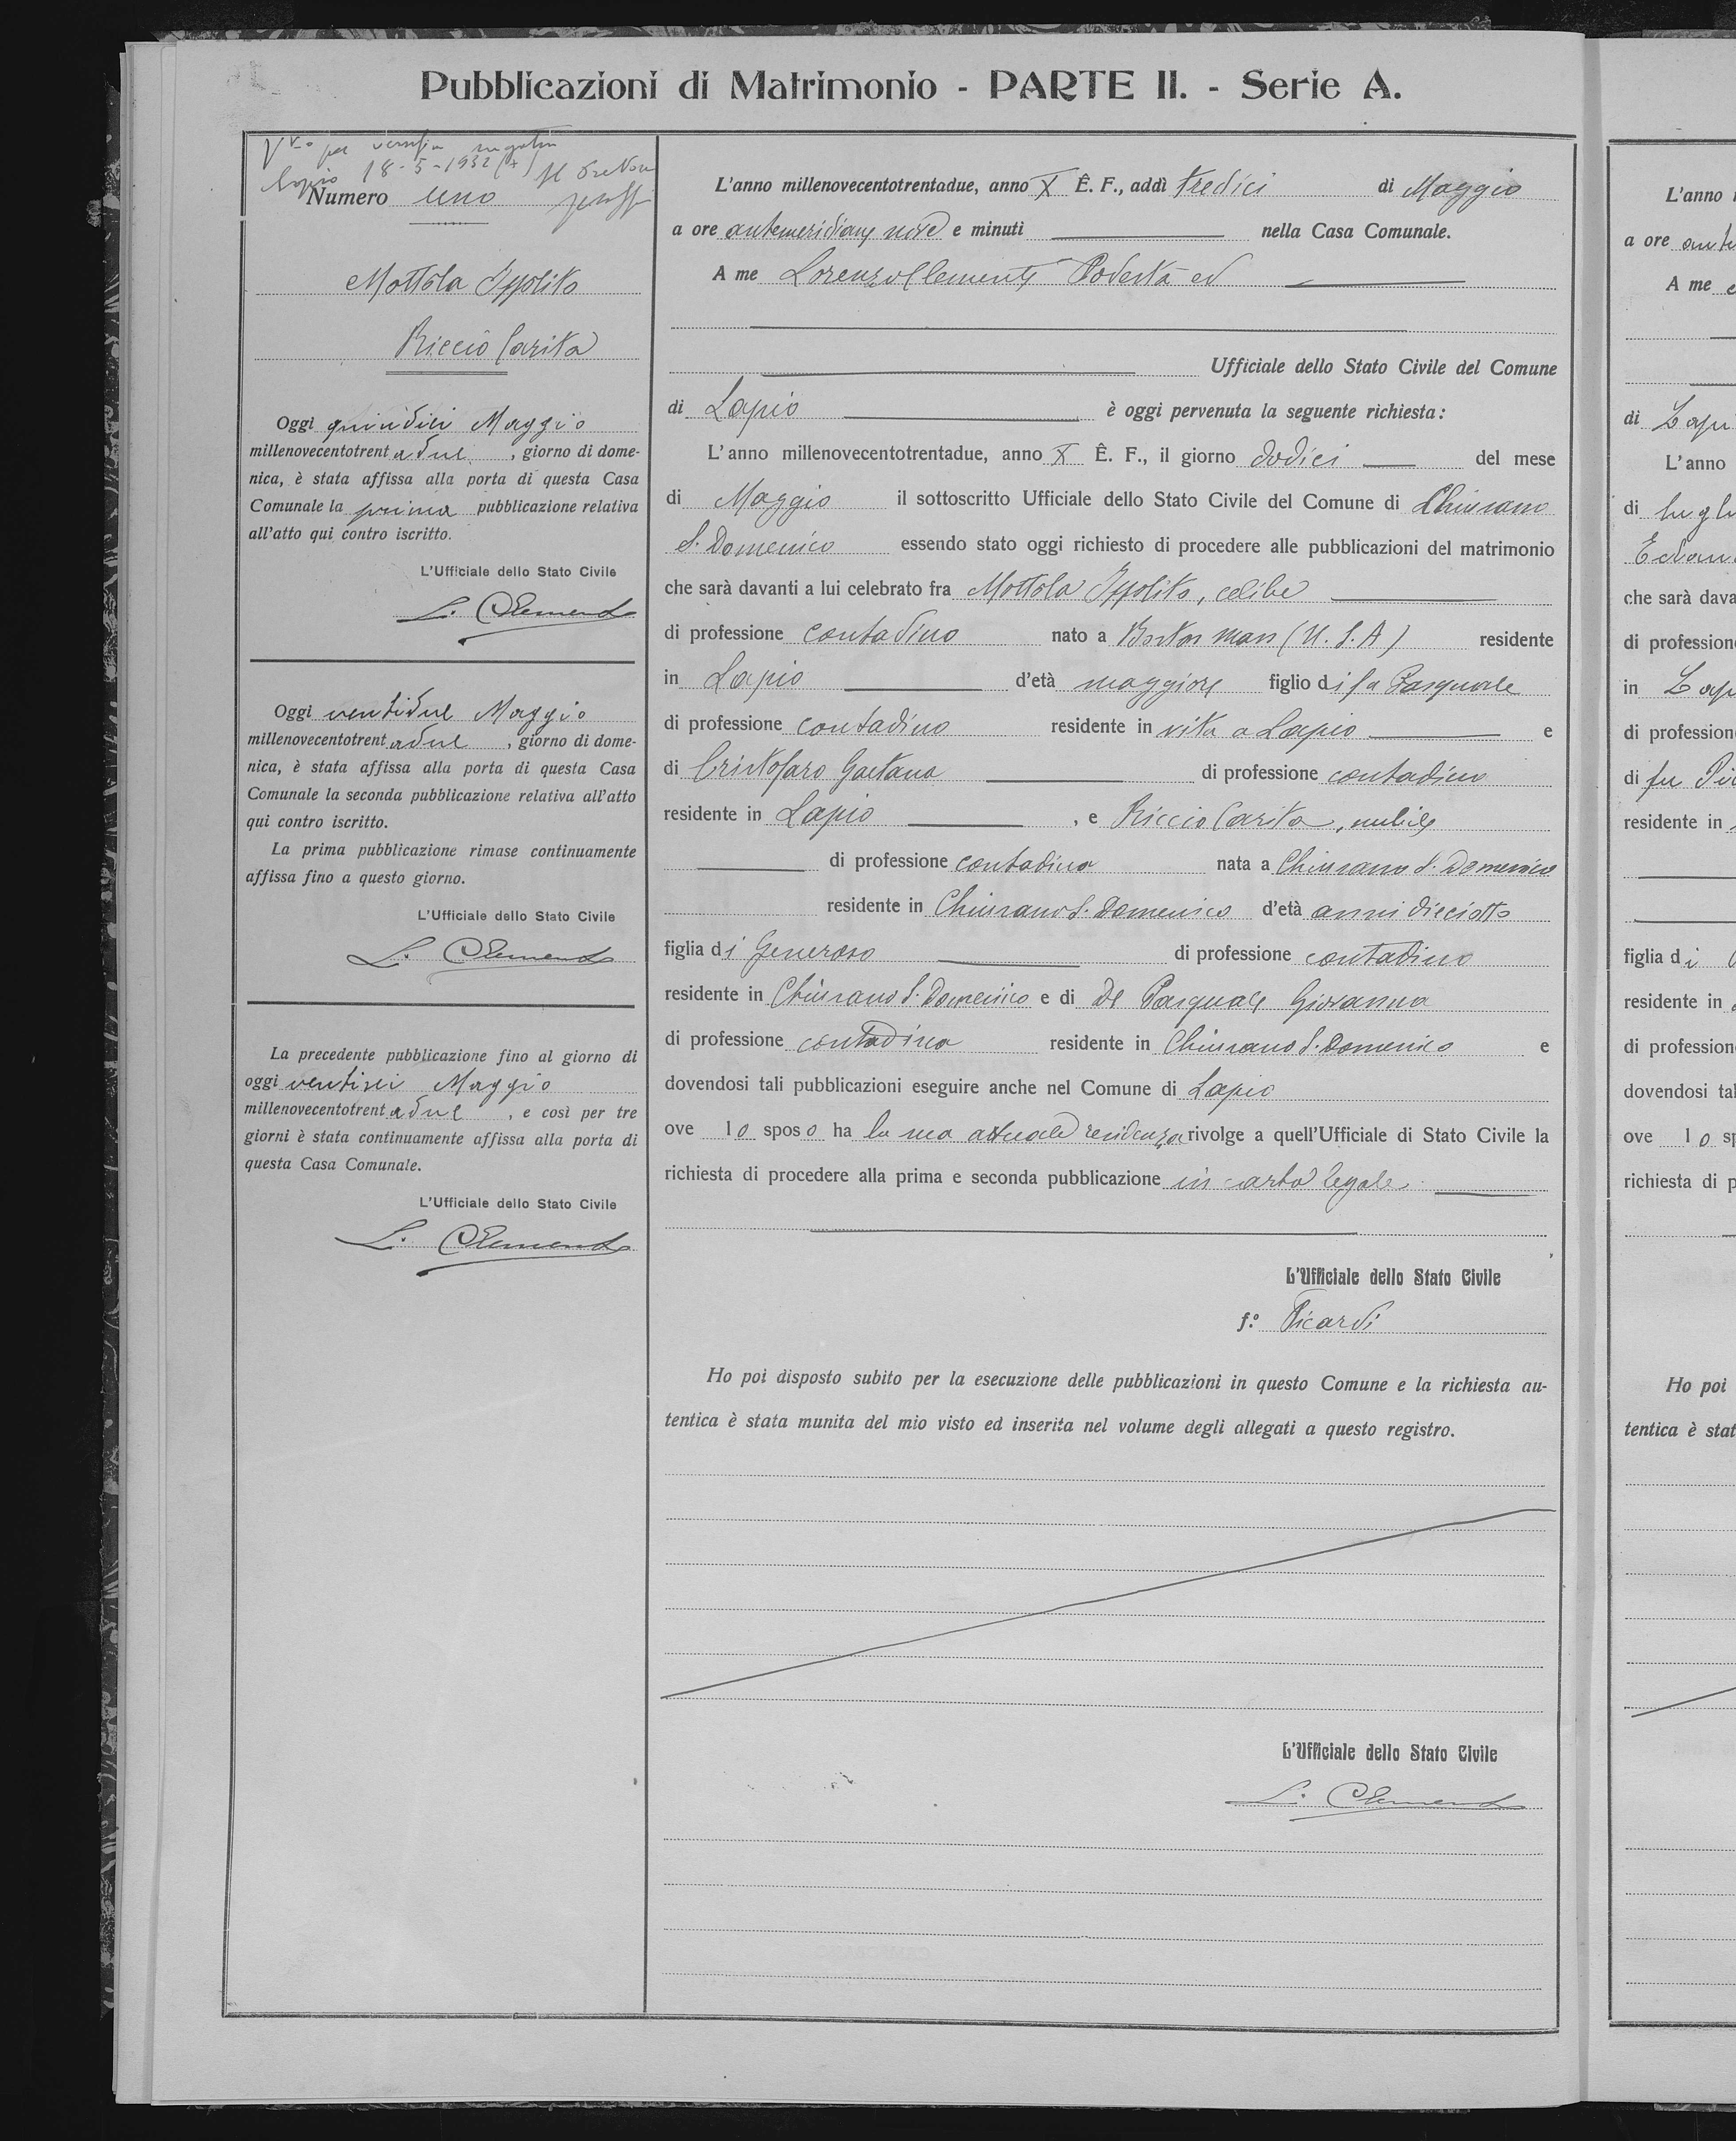 Pubblicazioni di Matrimonio - PARTE II. - Serie A.
18-5-1932 (X)
Numero uno
Mottola Ippolito
Riccio Carita
Oggi quindici Maggio
millenovecentotrentadue, giorno di dome-
nica, è stata affissa alla porta di questa Casa
Comunale la prima pubblicazione relativa
all'atto qui contro iscritto.
L'Ufficiale dello Stato Civile
L. Clemente
Oggi ventidue Maggio
millenovecentotrentadue, giorno di dome-
nica, è stata affissa alla porta di questa Casa
Comunale la seconda pubblicazione relativa all'atto
qui contro iscritto.
La prima pubblicazione rimase continuamente
affissa fino a questo giorno.
L'Ufficiale dello Stato Civile
L. Clemente
La precedente pubblicazione fino al giorno di
oggi ventisei Maggio
millenovecentotrentadue, e così per tre
giorni è stata continuamente affissa alla porta di
questa Casa Comunale.
L'Ufficiale dello Stato Civile
L. Clemente
L'anno millenovecentotrentadue, anno X E. F., addì tredici di Maggio
a ore antemeridiane nove e minuti nella Casa Comunale.
A me Lorenzo Clemente Podestà ed
Ufficiale dello Stato Civile del Comune
di Lapio è oggi pervenuta la seguente richiesta:
L'anno millenovecentotrentadue, anno X E. F., il giorno dodici del mese
di Maggio il sottoscritto Ufficiale dello Stato Civile del Comune di Chiusano
S. Domenico essendo stato oggi richiesto di procedere alle pubblicazioni del matrimonio
che sarà davanti a lui celebrato fra Mottola Ippolito, celibe
di professione contadino nato a Boston Mass (U.S.A) residente
in Lapio d'età maggiore figlio di fu Pasquale
di professione contadino residente in vita a Lapio e
di Cristofaro Gaetana di professione contadina
residente in Lapio, e Riccio Carita, nubile
di professione contadina nata a Chiusano S. Domenico
residente in Chiusano S. Domenico d'età anni dieciotto
figlia di Generoso di professione contadino
residente in Chiusano S. Domenico e di De Pasquale Giovanna
di professione contadina residente in Chiusano S. Domenico e
dovendosi tali pubblicazioni eseguire anche nel Comune di Lapio
ove lo sposo ha la sua attuale residenza rivolge a quell'Ufficiale di Stato Civile la
richiesta di procedere alla prima e seconda pubblicazione in carta legale.
L'Ufficiale dello Stato Civile
f.° Picardi
Ho poi disposto subito per la esecuzione delle pubblicazioni in questo Comune e la richiesta au-
tentica è stata munita del mio visto ed inserita nel volume degli allegati a questo registro.
L'Ufficiale dello Stato Civile
L. Clemente
L'anno
a ore
A me
di
L'anno
di
che sarà dava
di profession
in
di profession
di fu
residente in
figlia di
residente in
di profession
dovendosi tal
ove lo sp
richiesta di p
Ho poi
tentica è stat